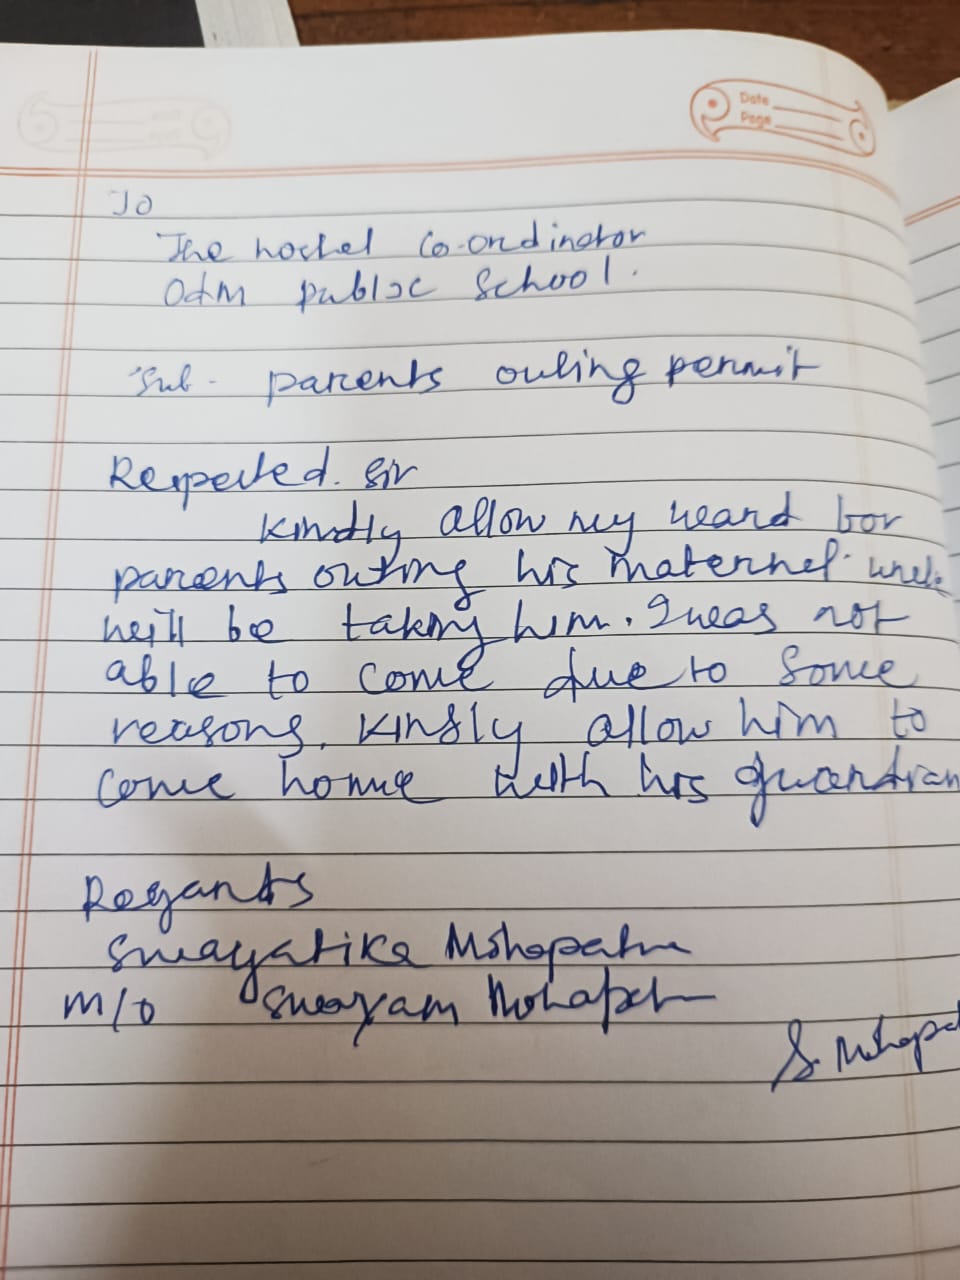 Date
Page
To
The hostel Co-ordinator
Odm public School.
Sub- parents outing permit
Respected. Sir
Kindly allow my ward for
parents outing his maternel uncle
will be taking him. I was not
able to come due to Some
reasons. Kindly allow him to
come home with his guardian
Regards
Swayatika Mohapatra
m/o Swayam Mohapatra
S. Mohapa